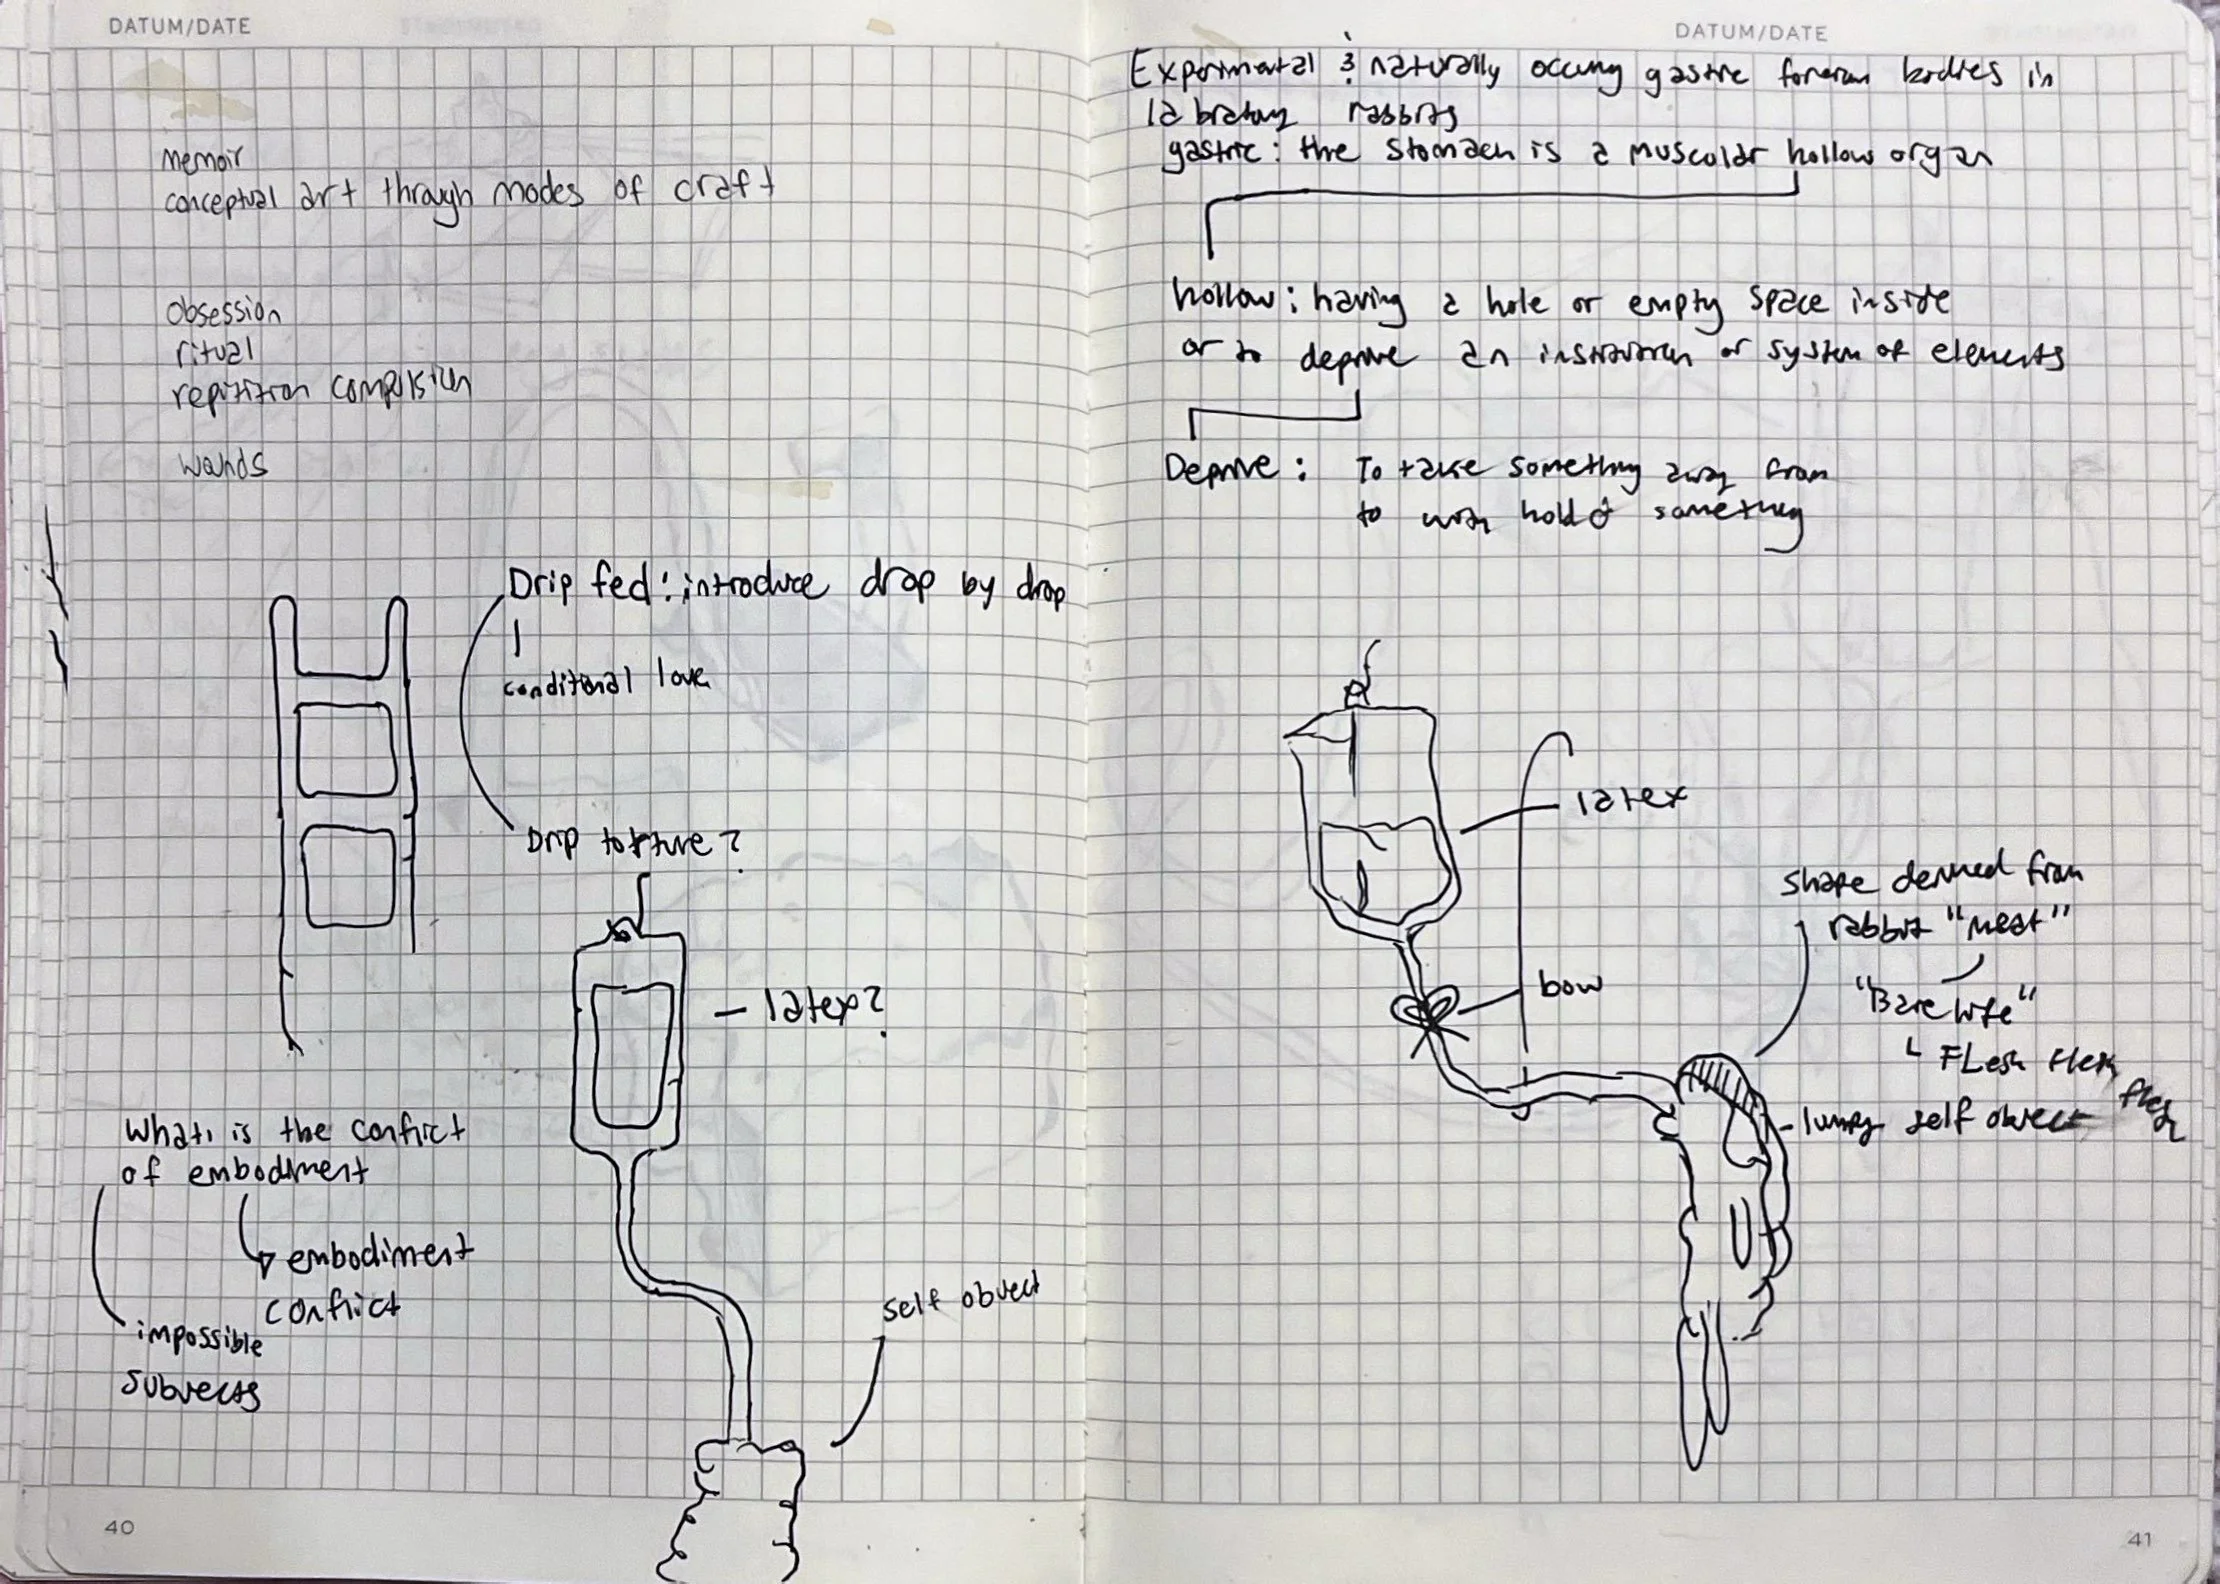 DATUM/DATE
memoir
conceptual art through modes of craft
obsession
ritual
repitition compulsion
wands
Drip fed: introduce drop by drop
conditional love
Drip torture?
latex?
What is the conflict
of embodiment
embodiment
conflict
impossible
subjects
self object
40
DATUM/DATE
Experimental & naturally occuring gastric foreign bodies in
labratory rabbits
gastric: the stomach is a muscular hollow organ
hollow: having a hole or empty space inside
or to deprive an institution or system of elements
Deprive: To take something away from
to with hold something
latex
bow
shape derived from
rabbit "meat"
"Bare life"
Flesh flesh flesh
lumpy self object
41